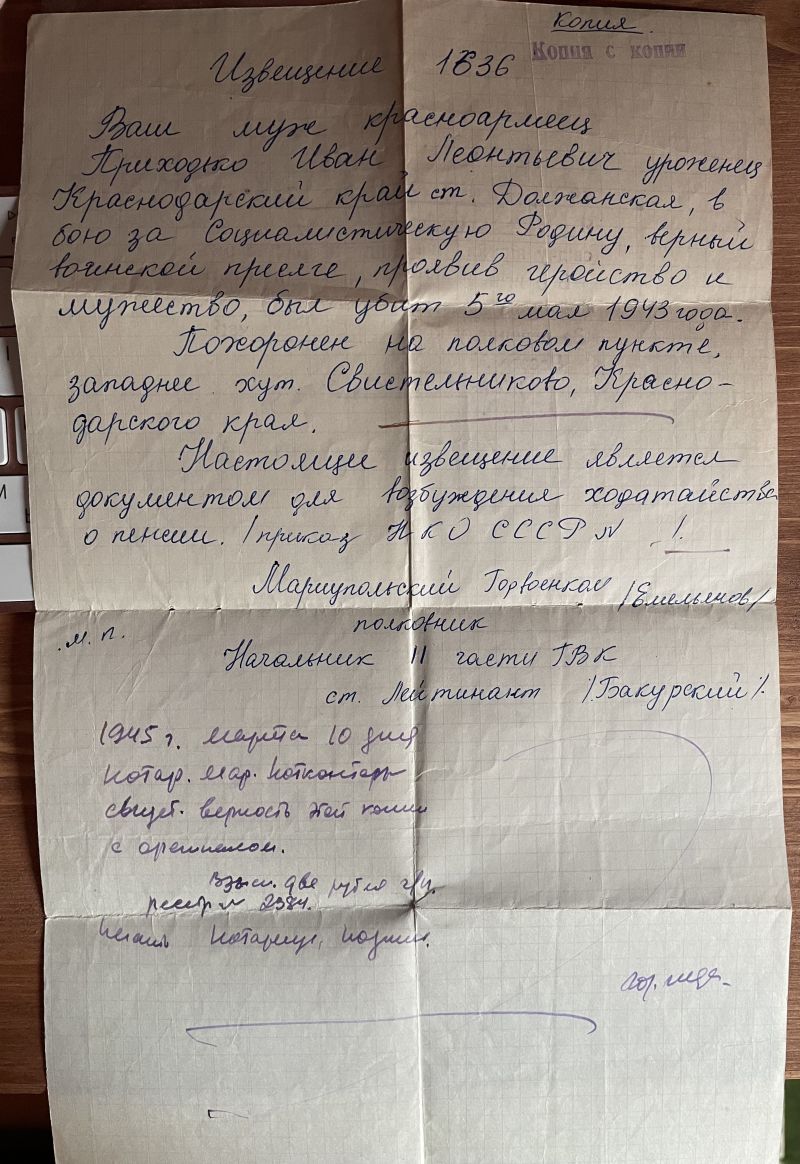 Копия
Копия с копии
Извещение 1636
Ваш муж красноармеец
Приходько Иван Леонтьевич уроженец
Краснодарский край ст. Должанская, в
бою за Социалистическую Родину, верный
воинской присяге, проявив геройство и
мужество, был убит 5го мая 1943 года.
Похоронен на полковом пункте,
западнее хут. Свистельниково, Красно-
дарского края.
Настоящее извещение является
документом для возбуждения ходатайства
о пенсии. /приказ НКО СССР N /.
Мариупольский Горвоенком /Емельянов/
м. п. полковник
Начальник II части ГВК
ст. Лейтинант /.Бакурский/.
1945 г. марта 10 дня
Нотар. Мар. Нотконторы
свидет. верность этой копии
с оригиналом.
Взыск. две рубля г/п.
реестр N 2384.
Печать Нотариус, подпис.